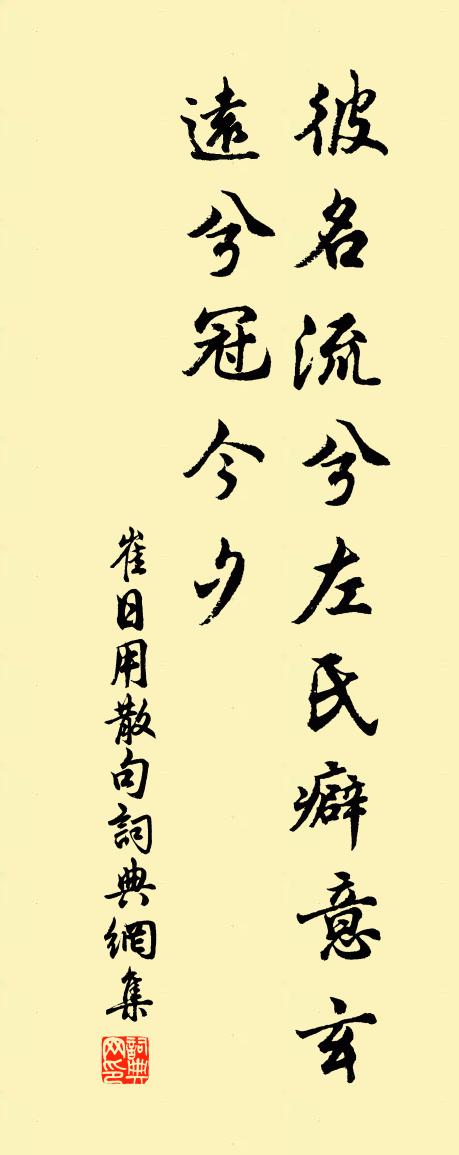 彼名流兮左氏癖意玄
遠兮冠今夕
崔日用散句詞典網集
詞典網印